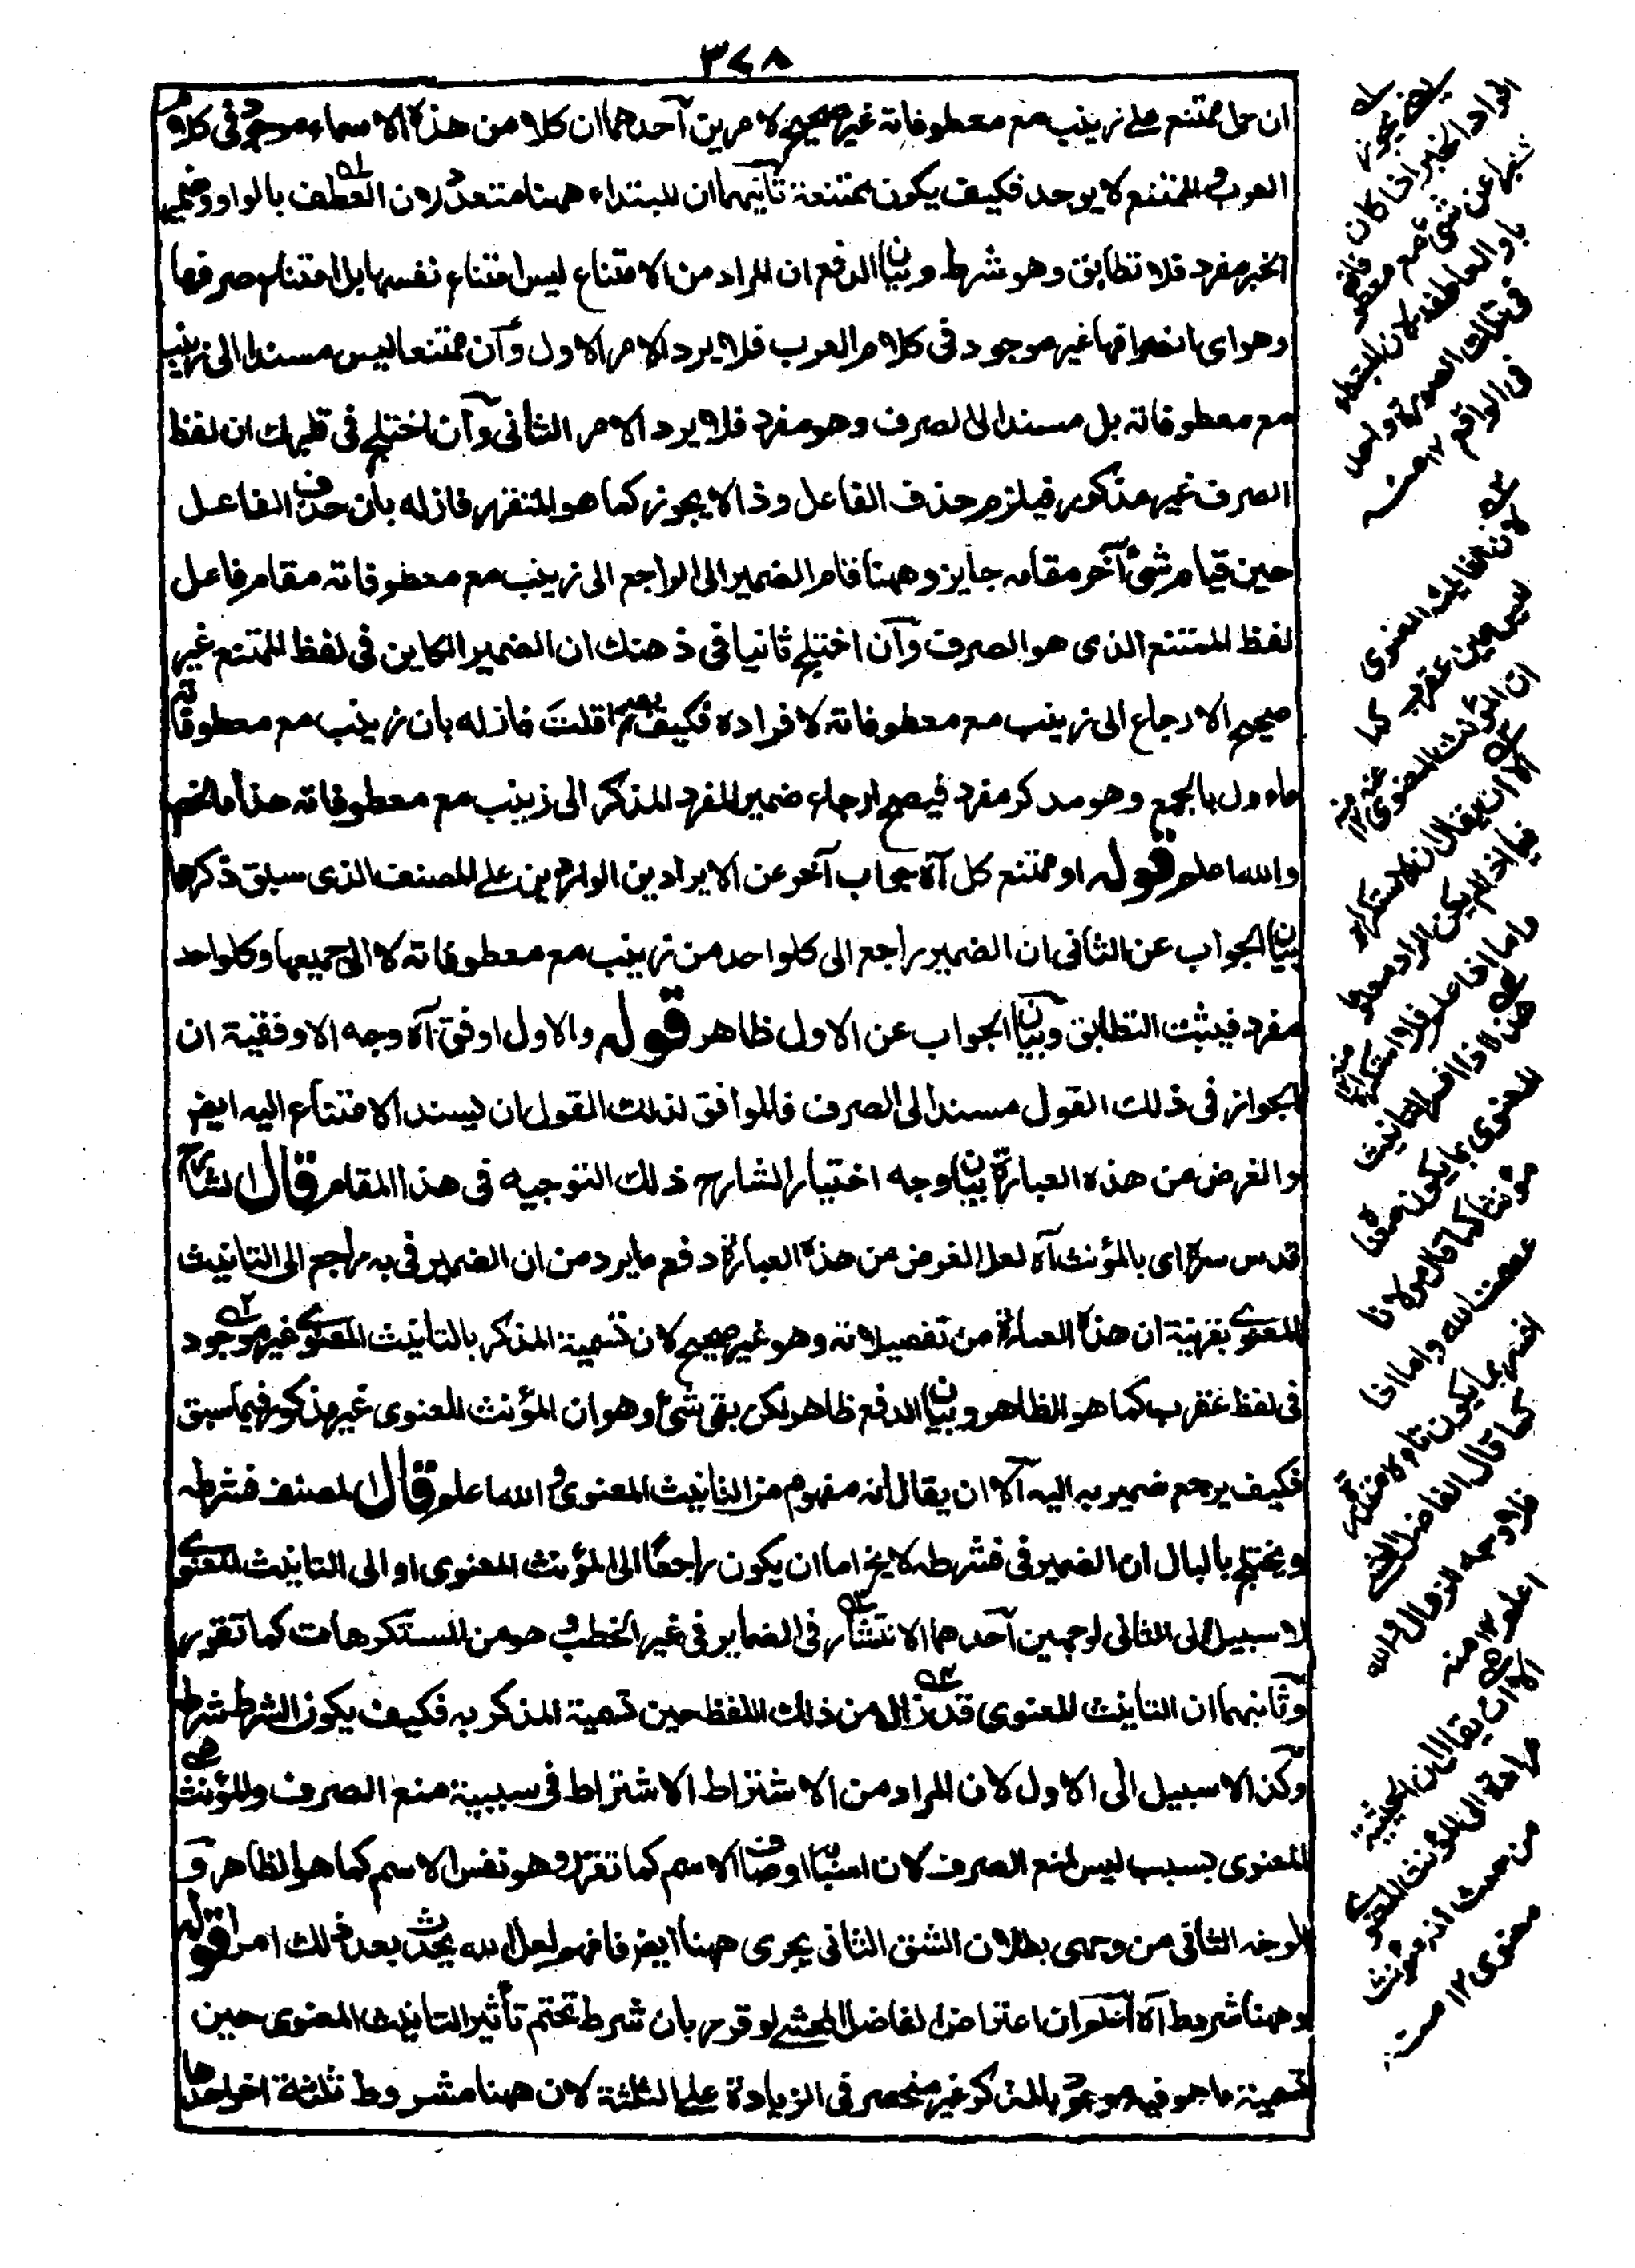 ٣٤٨
ان حمل ممتنع على زينب مع معطوفاته غير صحيح لامرين آحدهما ان كلا من هذه الاسماء موجود فى كلام
العرب والممتنع لا يوجد فكيف يكون ممتنعة ثانيهما ان المبتداء ههنا متعدد لان العطف بالواو وضمير
الخبر مفرد فلا تطابق وهو شرط وبيان الدفع ان المراد من الامتناع ليس امتناع نفسها بل امتناع صرفها
وهو اى انصرافها غير موجود فى كلام العرب فلا يرد الامر الاول وآن ممتنعا ليس مسندا الى زينب
مع معطوفاته بل مسندا الى الصرف وهو مفرد فلا يرد الامر الثانى وآن اختلج فى قلبك ان لفظ
الصرف غير مذكور فيلزم حذف الفاعل وذا لا يجوز كما هو المتقرر فازله بان حذف الفاعل
حين قيام شئ آخر مقامه جايز وههنا قام الضمير الى الراجع الى زينب مع معطوفاته مقام فاعل
لفظ الممتنع الذى هو الصرف وآن اختلج ثانيا فى ذهنك ان الضمير الكاين فى لفظ الممتنع غير
صحيح الارجاع الى زينب مع معطوفاته لافراده فكيف يصح ما قلت فازله بان زينب مع معطوفاته
ماءول بالجمع وهو مذكر مفرد فيصح ارجاء ضمير المفرد المذكر الى زينب مع معطوفاته هذا ملخص
والله اعلم قوله او ممتنع كل آه جواب آخر عن الايرادين الواردين على المصنف الذى سبق ذكرها
بيان الجواب عن الثانى ان الضمير راجع الى كلواحد من زينب مع معطوفاته لا الى جميعها وكلواحد
مفرد فيثبت التطابق وبيان الجواب عن الاول ظاهر قوله والاول اوفق آه وجه الاوفقية ان
الجواز فى ذلك القول مسندا الى الصرف فالموافق لذلك القول ان يسند الامتناع اليه ايض
والغرض من هذه العبارة بيان وجه اختيار الشارح ذلك التوجيه فى هذا المقام قال الشارح
قدس سره اى بالمؤنث آه لعل الغرض من هذه العبارة دفع ما يرد من ان الضمير فى به راجع الى التانيث
المعنوى بقرينة ان هذه العبارة من تفصيلاته وهو غير صحيح لان تسمية المذكر بالتانيث المعنوى غير موجود
فى لفظ عقرب كما هو الظاهر وبيان الدفع ظاهر لكن بقى شئ وهو ان المؤنث المعنوى غير مذكور فيما سبق
فكيف يرجع ضمير به اليه آلا ان يقال انه مفهوم من التانيث المعنوى والله اعلم قال المصنف فشرطه
ويختلج بالبال ان الضمير فى فشرطه لا يخ اما ان يكون راجعا الى المؤنث المعنوى او الى التانيث المعنوى
لا سبيل الى الثانى لوجهين آحدهما الانتشار فى الضماير فى غير الخطب وهو من المستكرهات كما تقرر
وثانيهما ان التانيث المعنوى قد زال من ذلك اللفظ حين تسمية المذكر به فكيف يكون الشرط شرط
وكذا لا سبيل الى الاول لان المراد من الاشتراط الاشتراط فى سببية منع الصرف والمؤنث
المعنوى بسبب ليس لمنع الصرف لان اسبابه اوصاف الاسم كما تقرر وهو نفس الاسم كما هو الظاهر و
الوجه الثانى من وجهى بطلان الشق الثانى يجرى ههنا ايض فافهم لعل الله يحدث بعد ذلك امرا قوله
وههنا شروط آه اعلم ان اعتراض الفاضل المحشى لو قرر بان شرط تحتم تأثير التانيث المعنوى حين
تسمية ما هو فيه موجود بالمذكر غير منحصر فى الزيادة على الثلثة لان ههنا مشروط ثلثة اخر احدها
المراد الخبر اذا كان
باو العاطفة لان المبتداء
فى تلك الصورة واحد
فى الواقع ١٢ منه
لان التانيث المعنوى
ليس عين عقرب كما
ان المؤنث المعنوى عينه ١٢ منه
الا ان يقال ان الاستكراه
فيما اذا لم يكن المراد معلوما
واما اذا علم فلا استكراه ١٢ منه
هذا اذا فسر التانيث
المعنوى بما يكون
مؤنثا كما قال مولانا
عصمت الله واما اذا
فسر بما يكون تاؤه مقدرة
كما قال الفاضل
فلا وجه للزوال والله
اعلم ١٢ منه
الا ان يقال ان الحيثية
مرادة اى المؤنث المعنوى
من حيث انه مؤنث
معنوى ١٢ منه